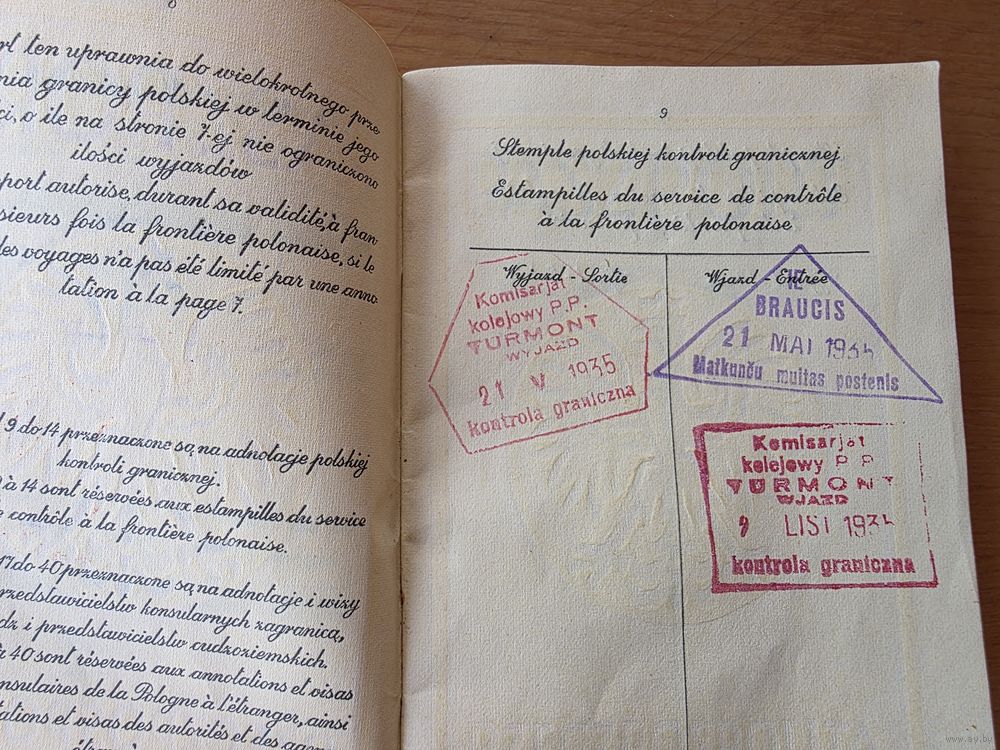 8
rt ten uprawnia do wielokrotnego prze-
nia granicy polskiej w terminie jego
ci, o ile na stronie 7-ej nie ograniczono
ilości wyjazdów
port autorise, durant sa validité, à fran-
sieurs fois la frontière polonaise, si le
des voyages n'a pas été limité par une anno-
tation à la page 7.
9 do 14 przeznaczone są na adnotacje polskiej
kontroli granicznej.
à 14 sont réservées aux estampilles du service
e contrôle à la frontière polonaise.
17 do 40 przeznaczone są na adnotacje i wizy
rzedstawicielstw konsularnych zagranicą,
dz i przedstawicielstw cudzoziemskich.
à 40 sont réservées aux annotations et visas
nsulaires de la Pologne à l'étranger, ainsi
tations et visas des autorités et des agen
9
Stemple polskiej kontroli granicznej
Estampilles du service de contrôle
à la frontière polonaise
Wyjazd - Sortie
Wjazd - Entrée
Komisarjat
kolejowy P.P.
TURMONT
WYJAZD
21 V 1935
kontrola graniczna
IE
BRAUCIS
21 MAI 1935
Malkunču muitas postenis
Komisarjat
kolejowy P P
TURMONT
WJAZD
LIST 193
kontrola graniczna
www.ay.by